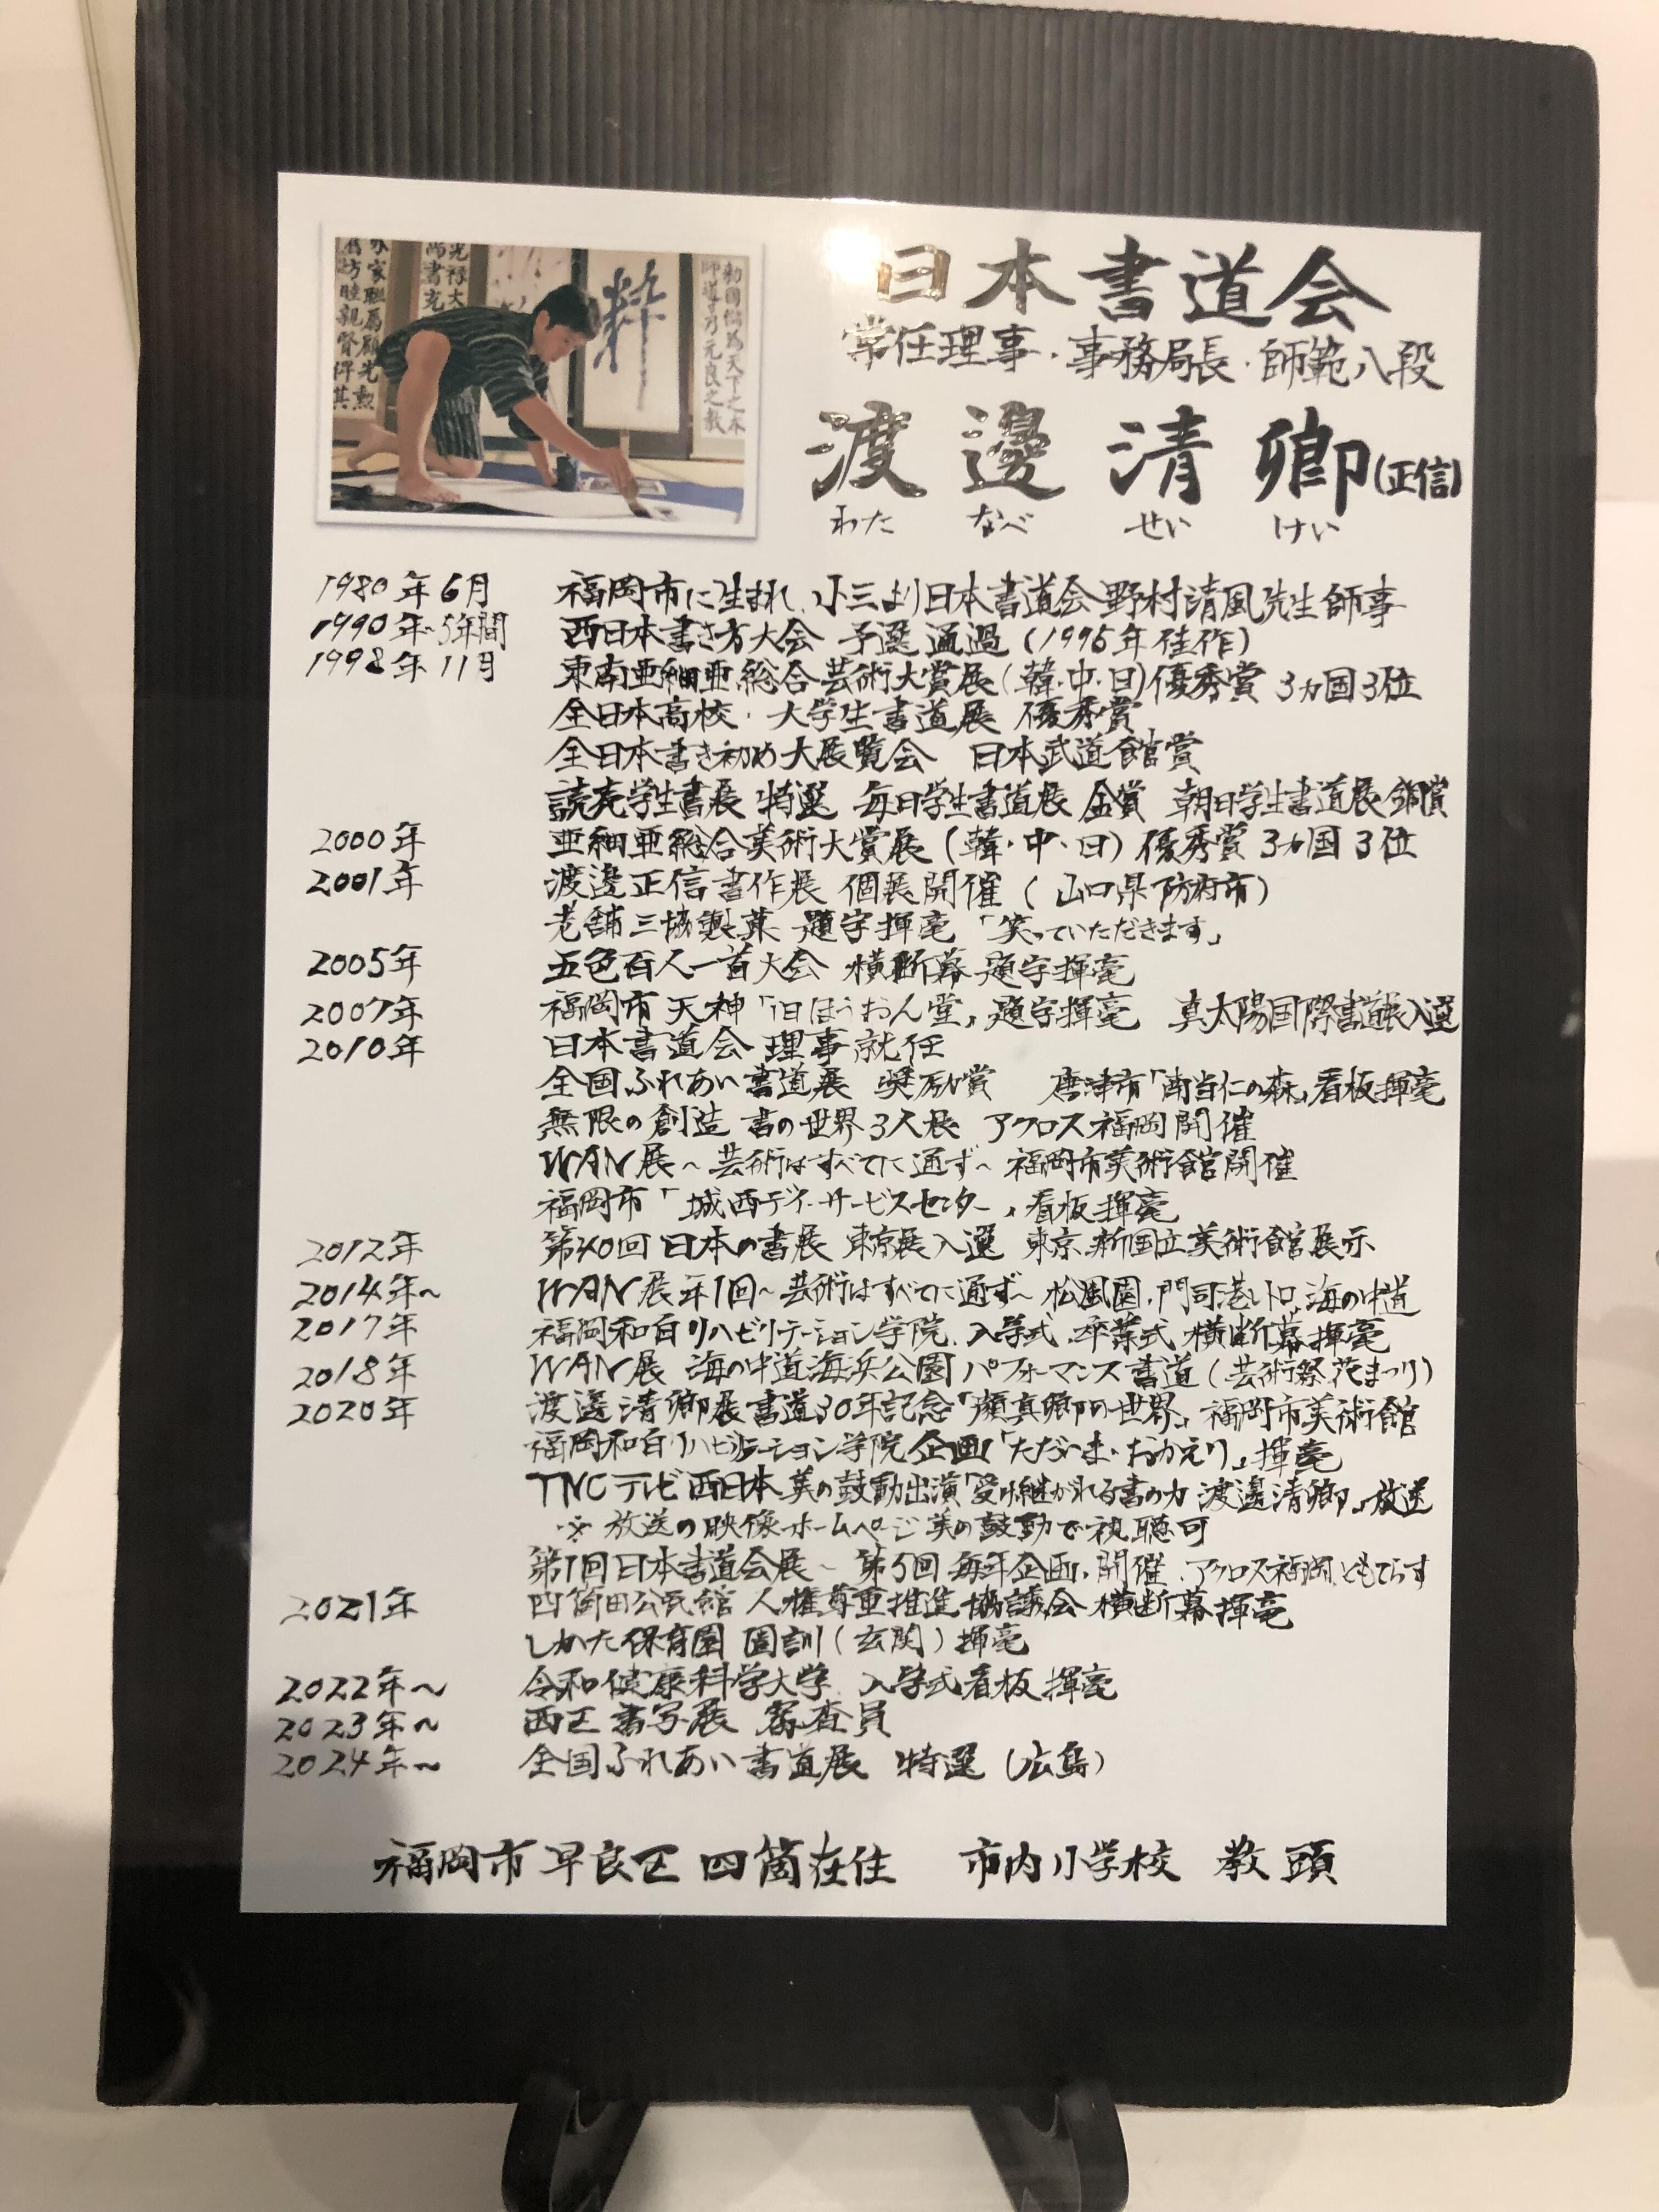 日本書道会
常任理事・事務局長・師範八段
渡邊清卿(正信)
わた なべ せい けい
1980年6月 福岡市に生まれ、小三より日本書道会野村清風先生師事
1990年~5年間 西日本書き方大会 予選通過(1995年佳作)
1998年11月 東南亜細亜総合芸術大賞展(韓・中・日)優秀賞 3ヵ国3位
全日本高校・大学生書道展 優秀賞
全日本書き初め大展覧会 日本武道館賞
読売学生書展 特選 毎日学生書道展 金賞 朝日学生書道展 銅賞
2000年 亜細亜総合美術大賞展(韓・中・日)優秀賞 3ヵ国3位
2001年 渡邊正信書作展 個展開催(山口県防府市)
老舗三協製菓 題字揮毫「笑っていただきます」
2005年 五色百人一首大会 横断幕題字揮毫
2007年 福岡市天神「旧ほうおん堂」題字揮毫 真太陽国際書道展入選
2010年 日本書道会 理事就任
全国ふれあい書道展 奨励賞 唐津市「南当仁の森」看板揮毫
無限の創造 書の世界3人展 アクロス福岡開催
WAN展~芸術はすべてに通ず~福岡市美術館開催
福岡市「城西デイ・サービスセンター」看板揮毫
2012年 第40回日本の書展 東京展入選 東京新国立美術館展示
2014年~ WAN展年1回~芸術はすべてに通ず~松風園,門司港レトロ,海の中道
2017年 福岡和白リハビリテーション学院、入学式、卒業式 横断幕揮毫
2018年 WAN展 海の中道海浜公園パフォーマンス書道(芸術祭、花まつり)
2020年 渡邊清卿展書道30年記念「顔真卿の世界」福岡市美術館
福岡和白リハビリテーション学院企画「ただいま・おかえり」揮毫
TNCテレビ西日本 美の鼓動出演「受け継がれる書の力 渡邊清卿」放送
※ 放送の映像ホームページ美の鼓動で視聴可
第1回日本書道会展~第5回 毎年企画、開催、アクロス福岡、ともてらす
2021年 四箇田公民館 人権尊重推進協議会 横断幕揮毫
しかた保育園 園訓(玄関)揮毫
2022年~ 令和健康科学大学、入学式看板揮毫
2023年~ 西区書写展 審査員
2024年~ 全国ふれあい書道展 特選(広島)
福岡市早良区四箇在住 市内小学校 教頭